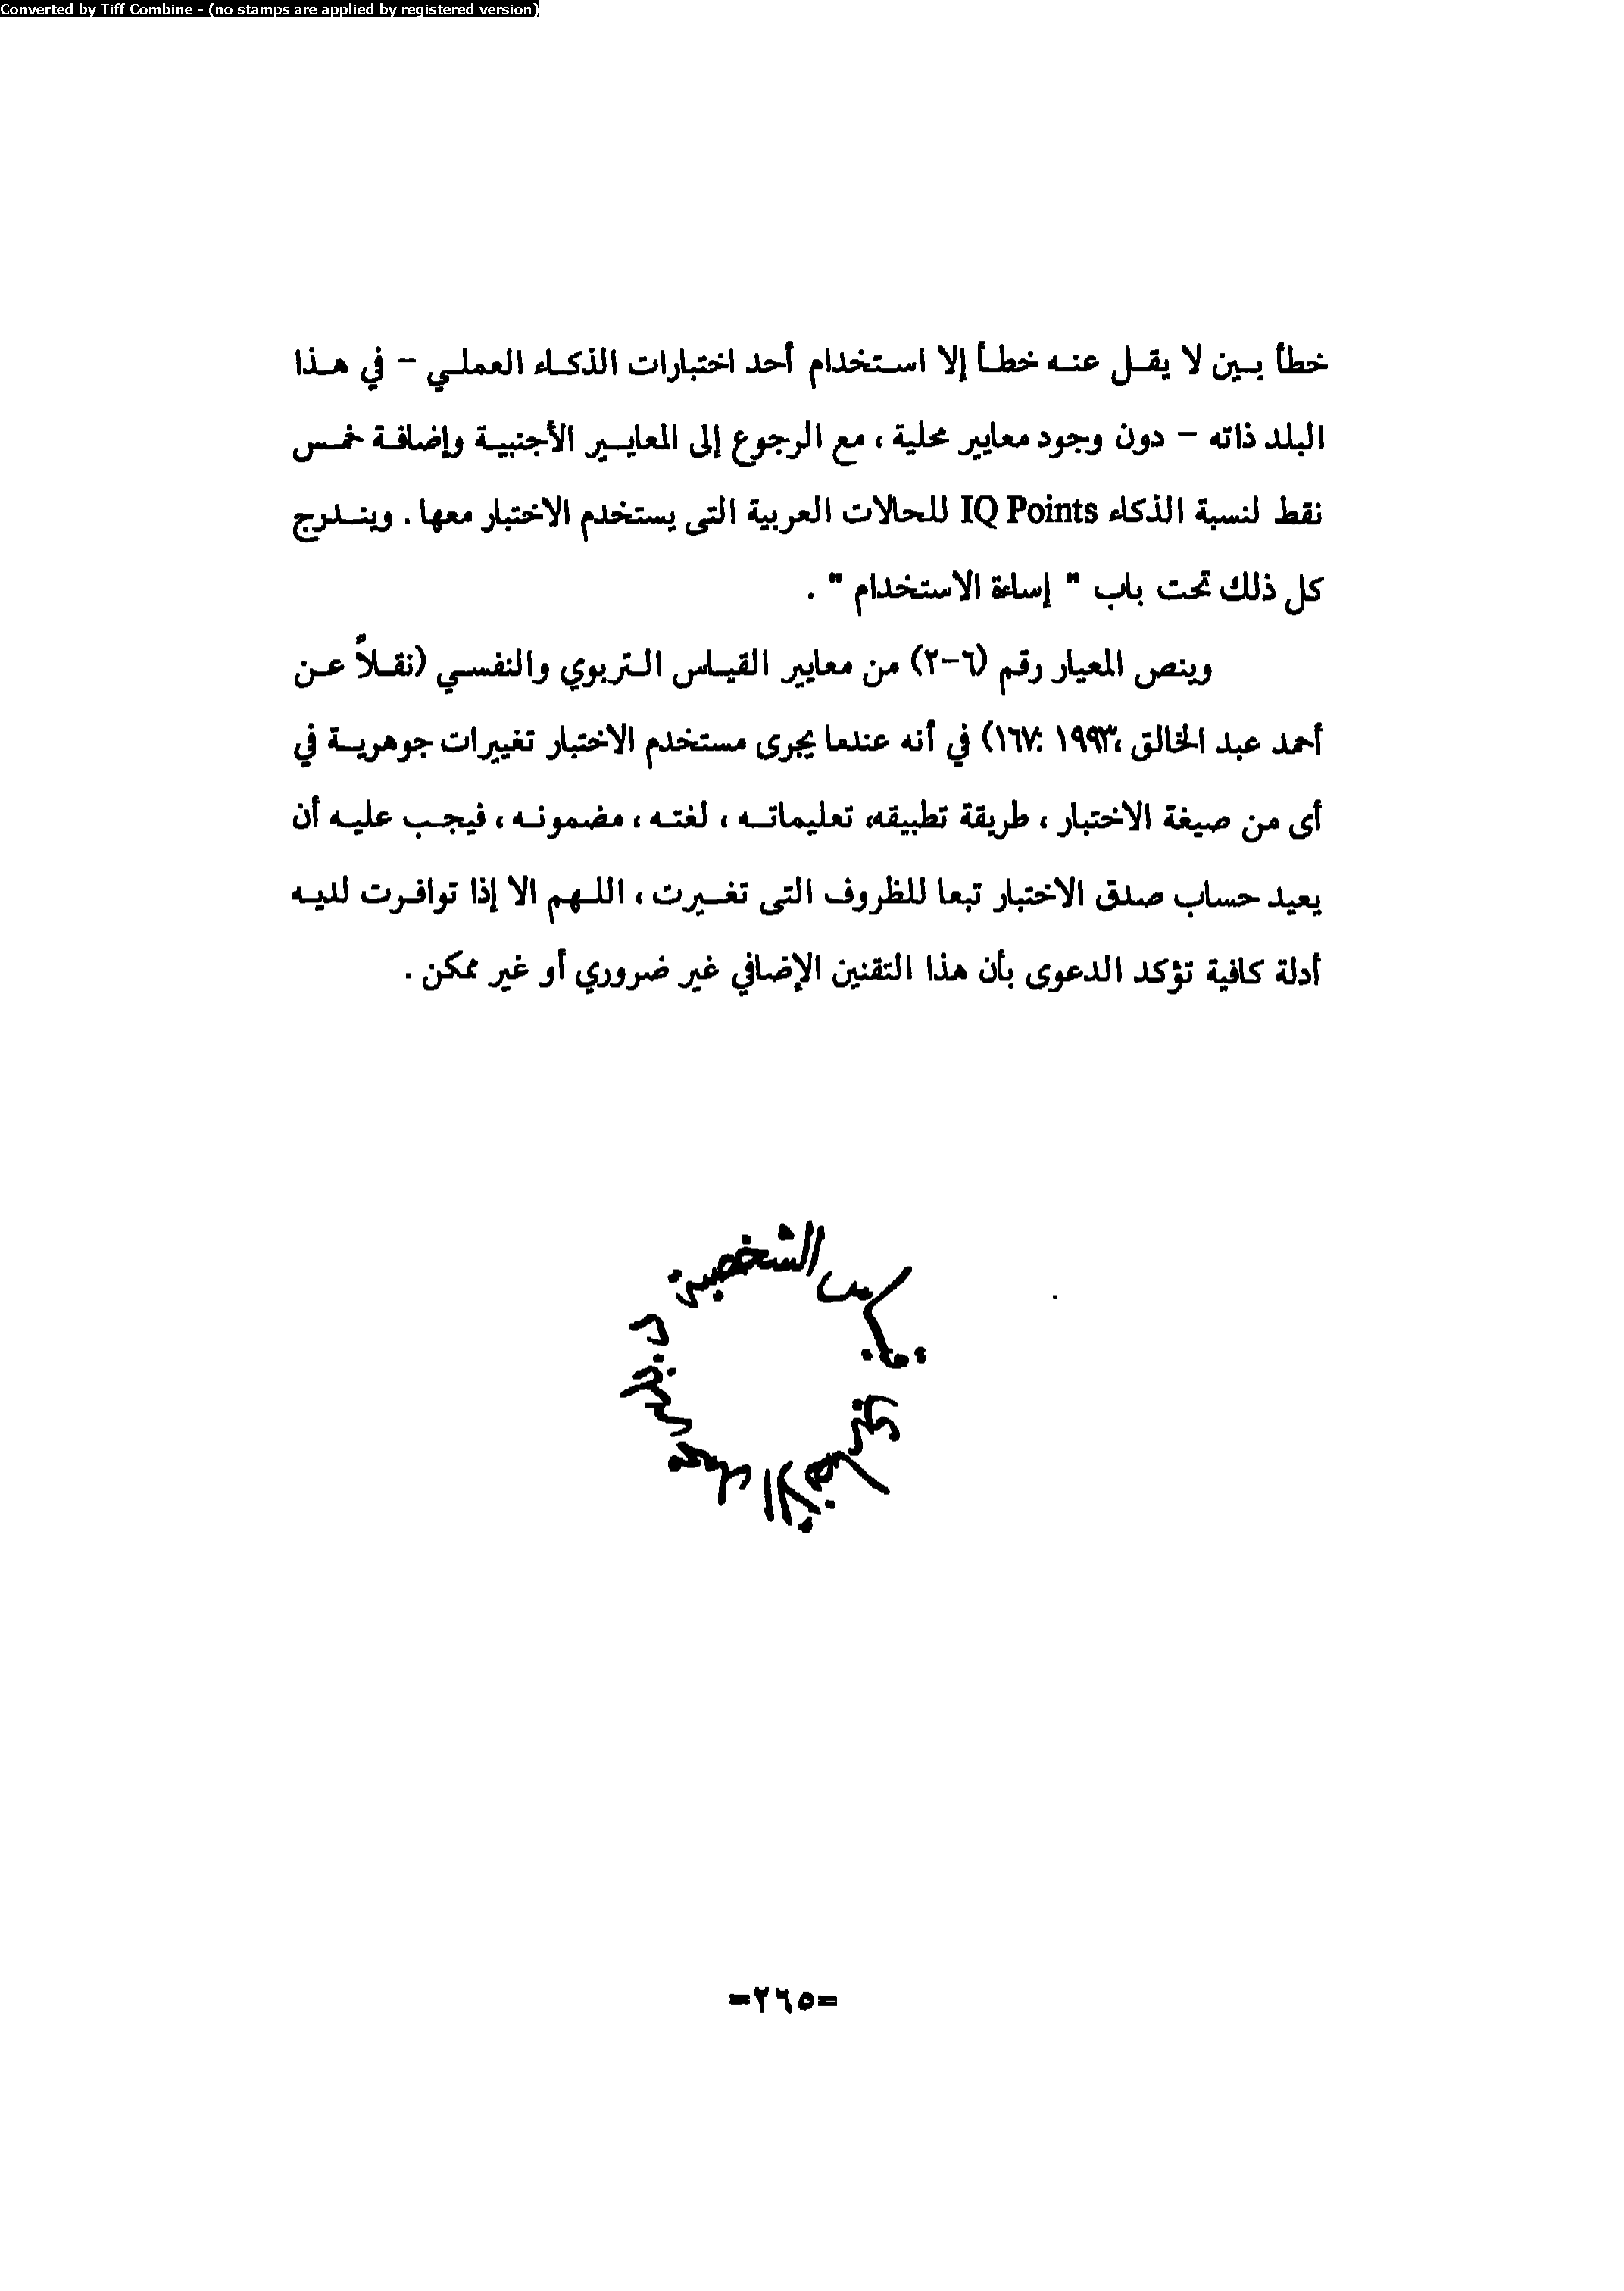 Converted by Tiff Combine - (no stamps are applied by registered version)
خطأ بين لا يقل عنه خطأ إلا استخدام أحد اختبارات الذكاء العملي - في هذا
البلد ذاته - دون وجود معايير محلية ، مع الرجوع إلى المعايير الأجنبية وإضافة خمس
نقط لنسبة الذكاء IQ Points للحالات العربية التى يستخدم الاختبار معها . ويندرج
كل ذلك تحت باب " إساءة الاستخدام " .
وينص المعيار رقم (٦-٢) من معايير القياس التربوي والنفسي (نقلاً عن
أحمد عبد الخالق ،١٩٩٣ :١٦٧) في أنه عندما يجرى مستخدم الاختبار تغييرات جوهرية في
أى من صيغة الاختبار ، طريقة تطبيقه، تعليماته ، لغته ، مضمونه ، فيجب عليه أن
يعيد حساب صدق الاختبار تبعا للظروف التى تغيرت ، اللهم الا إذا توافرت لديه
أدلة كافية تؤكد الدعوى بأن هذا التقنين الإضافي غير ضروري أو غير ممكن .
قياس الشخصية
=٢٦٥=